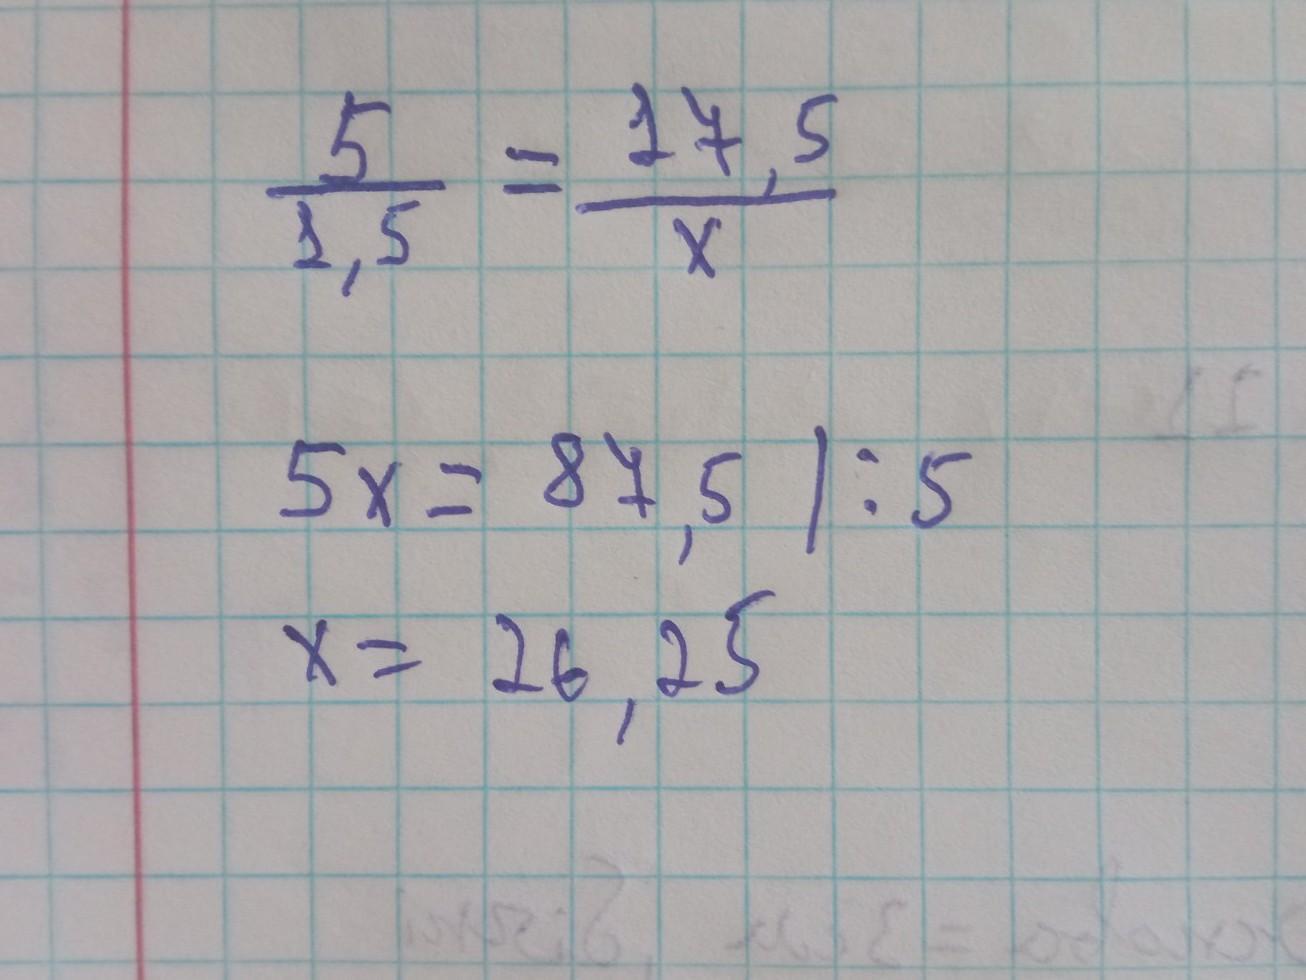 5/1,5 = 17,5/x
5x = 87,5 | : 5
x = 26,25